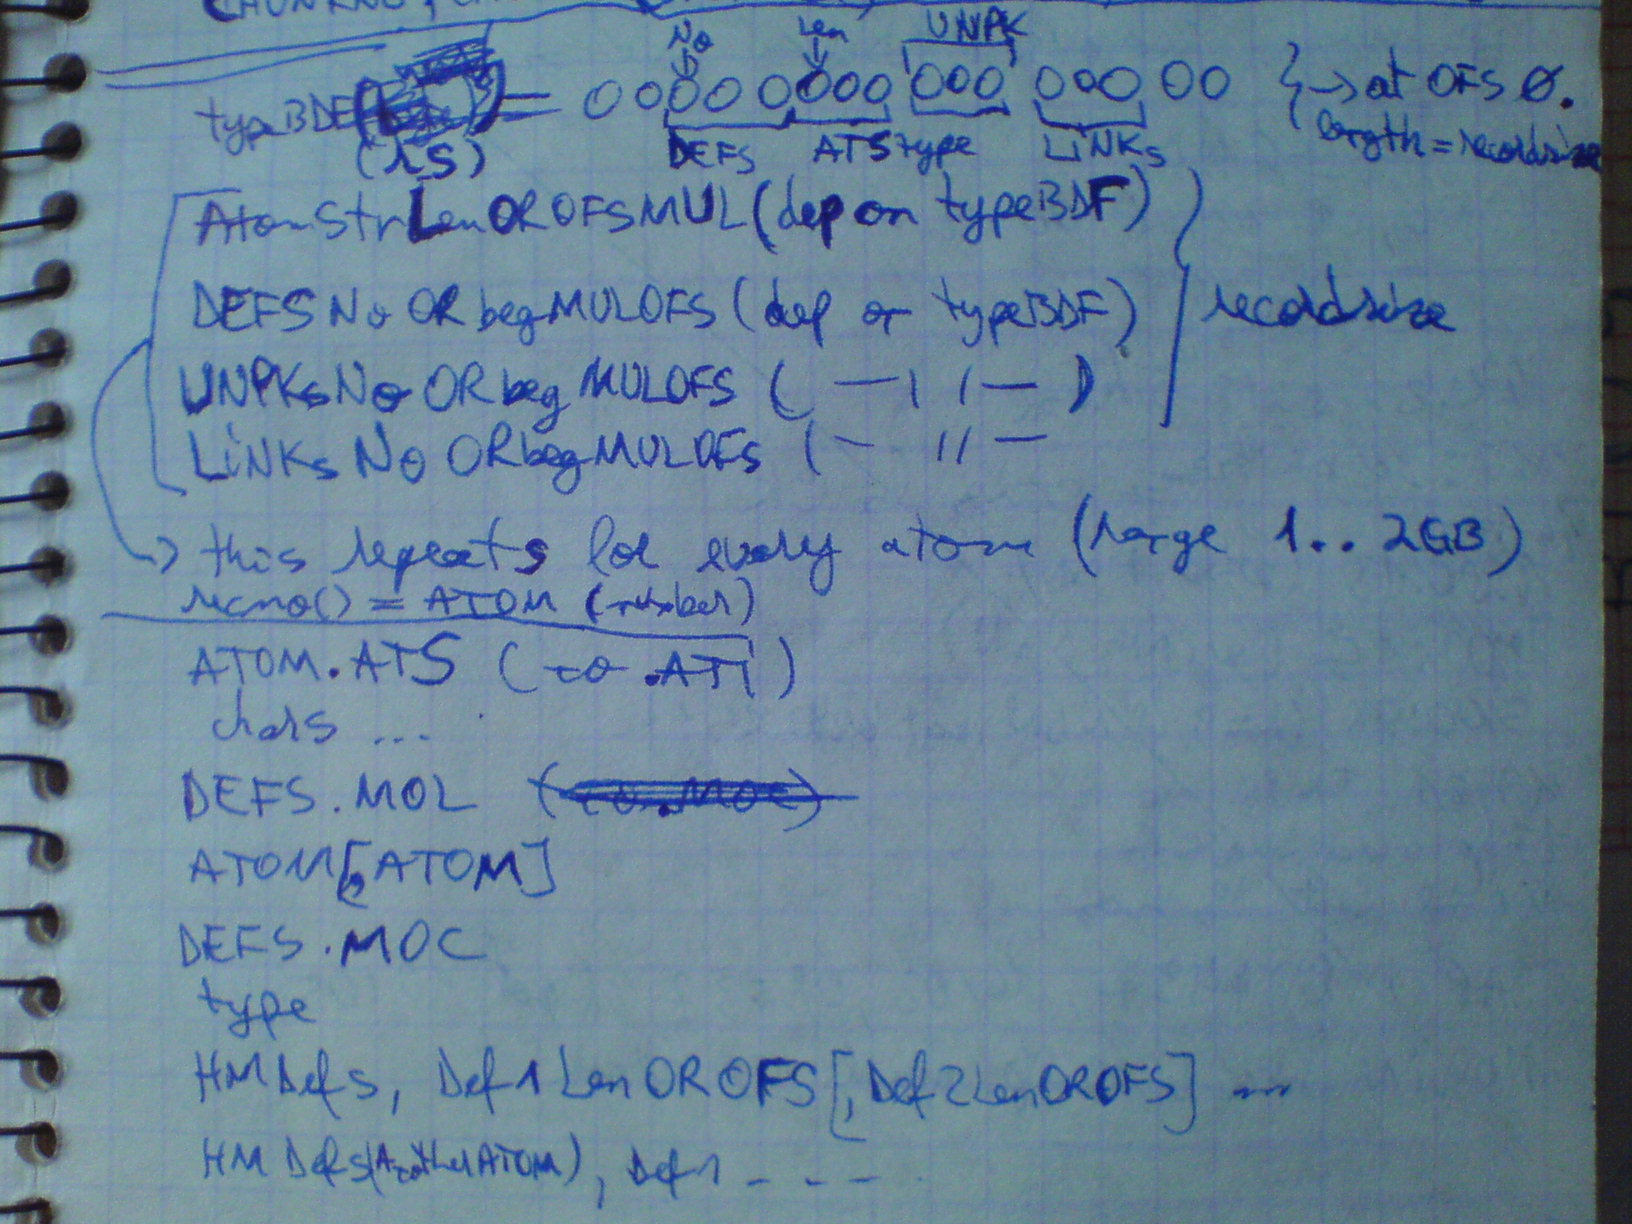 No Len UNPK
typeBDF = 00000000 000 000 00 } → at OFS Ø.
length = recordsize
(1S) DEFS ATStype LiNKs
AtomStrLenOROFSMUL (dep on typeBDF)
DEFS No OR begMULOFS (dep on typeBDF) recordsize
UNPKs No OR beg MULOFS ( —11— )
LiNKs No ORbegMULOFS ( —11—
→ this repeats for every atom (range 1.. 2GB)
recno() = ATOM (number)
ATOM.ATS (to .ATI)
chars ...
DEFS.MOL
ATOM[,ATOM]
DEFS.MOC
type
HMDefs, Def1LenOROFS[,Def2LenOROFS] ...
HMDefs(AnotherATOM), Def1 - - - -